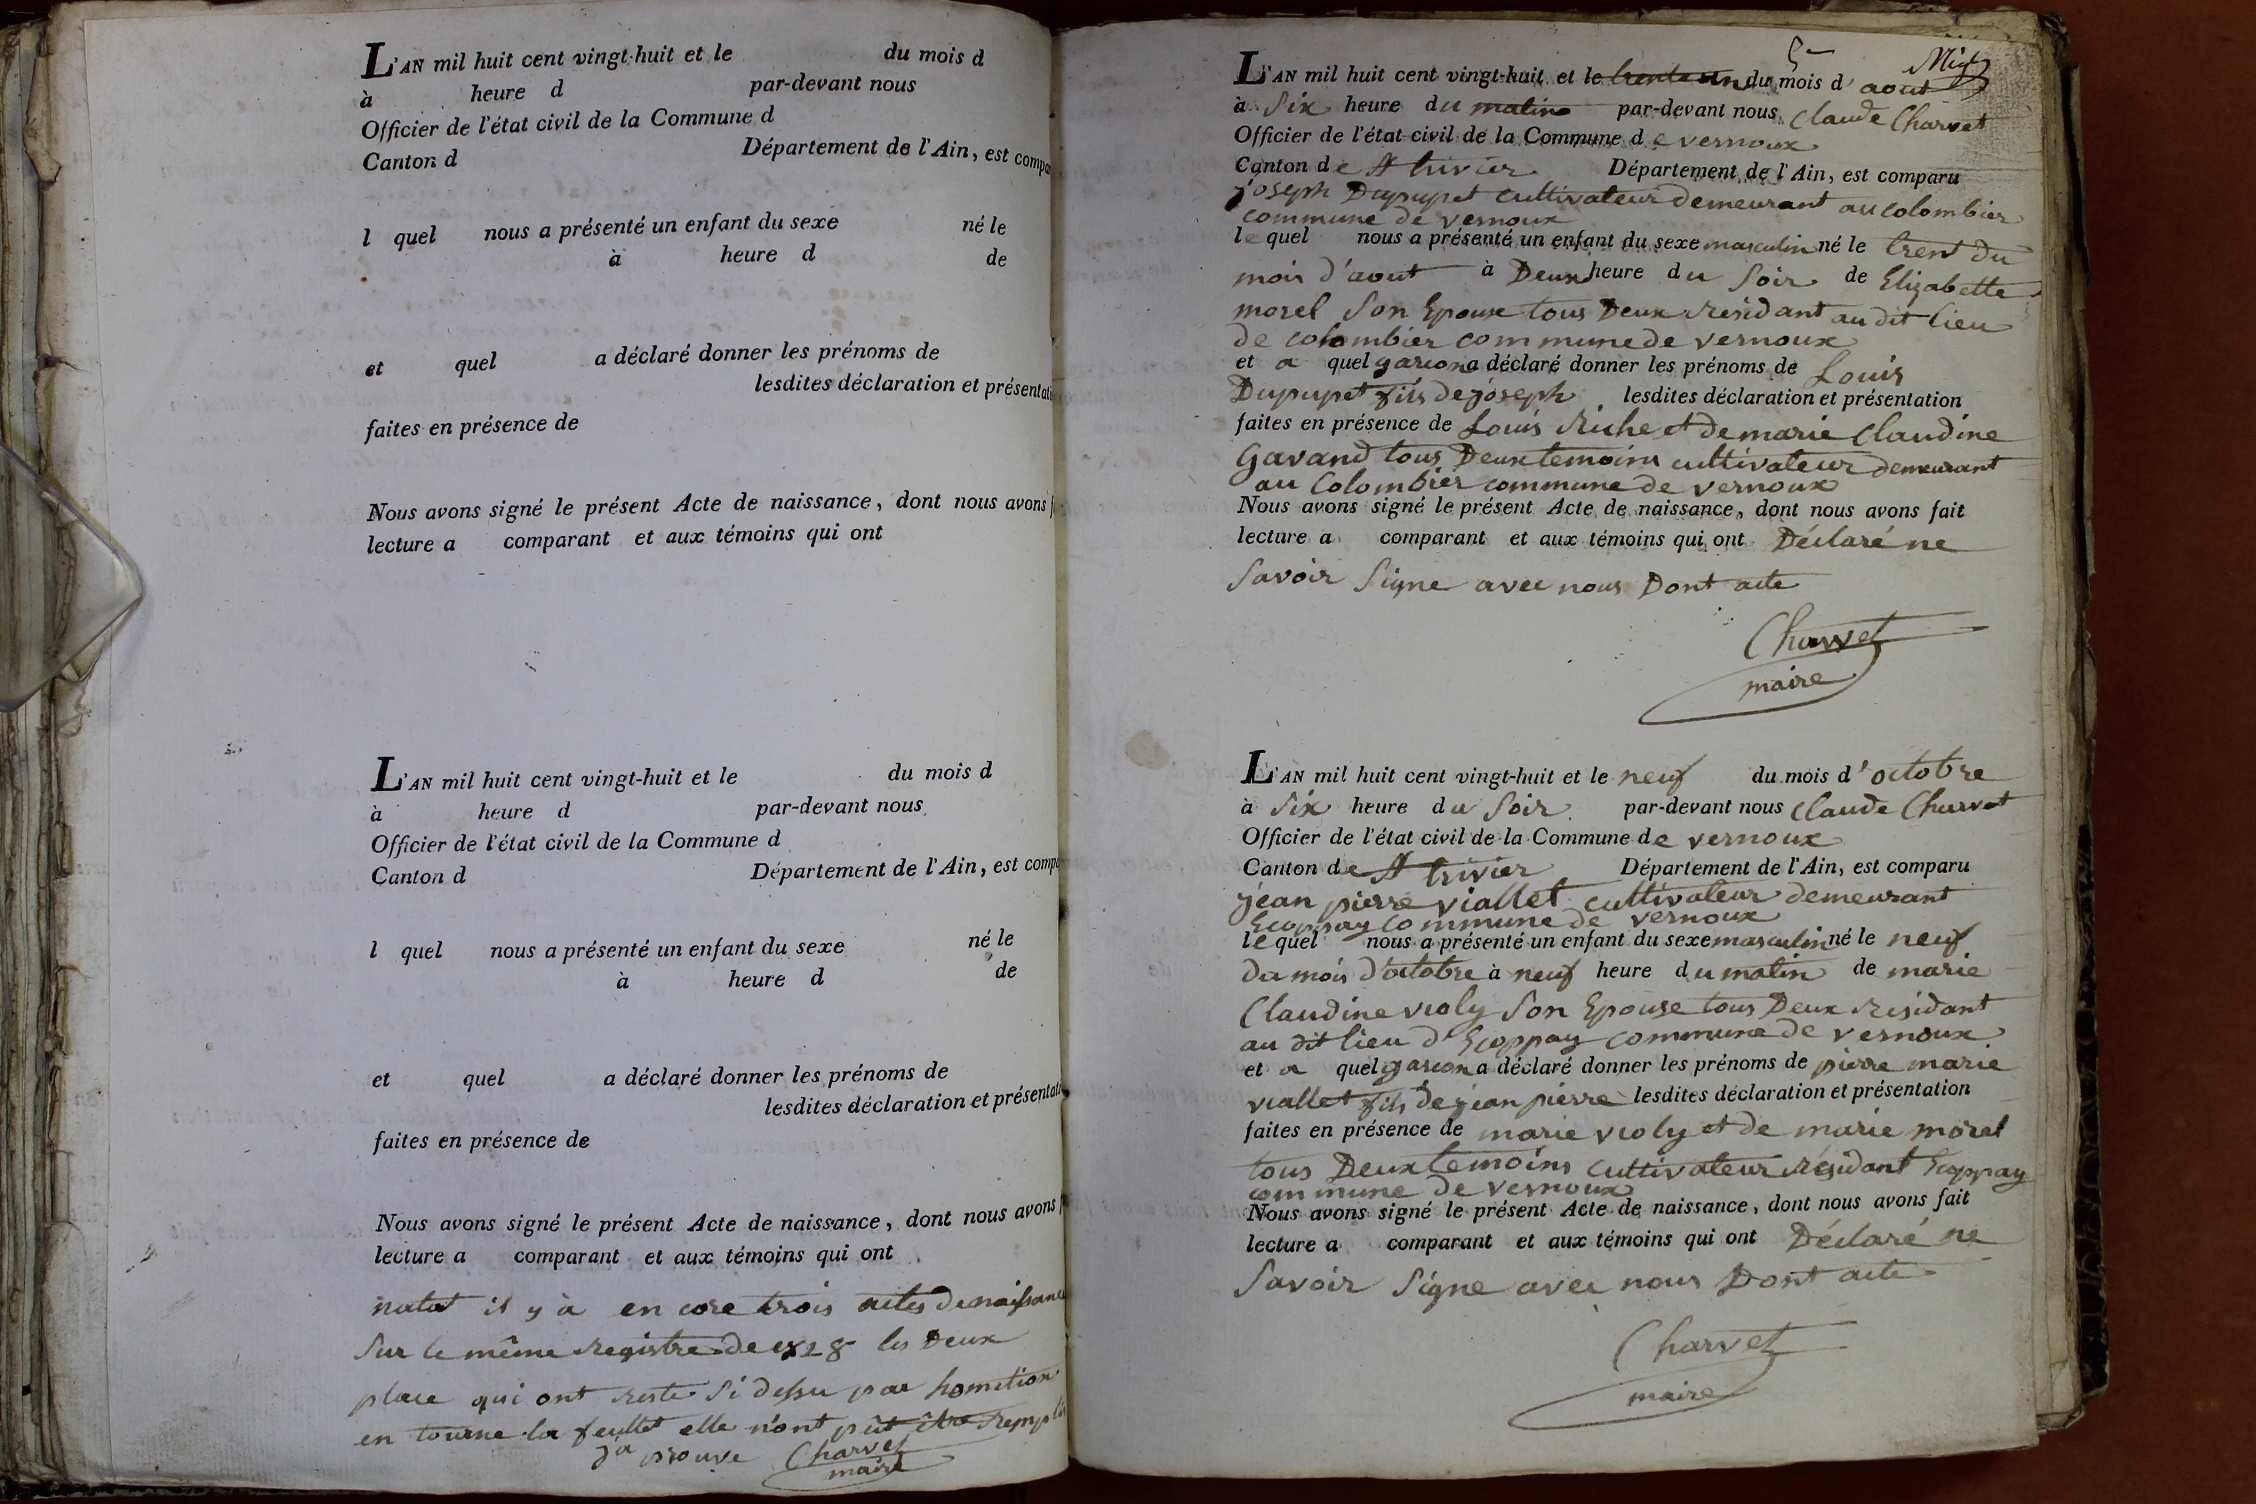 L'AN mil huit cent vingt-huit et le du mois d
à heure d par-devant nous
Officier de l'état civil de la Commune d
Canton d Département de l'Ain, est compa
l quel nous a présenté un enfant du sexe né le
à heure d de
et quel a déclaré donner les prénoms de
lesdites déclaration et présentati
faites en présence de
Nous avons signé le présent Acte de naissance, dont nous avons f
lecture a comparant et aux témoins qui ont
L'AN mil huit cent vingt-huit et le du mois d
à heure d par-devant nous
Officier de l'état civil de la Commune d
Canton d Département de l'Ain, est compa
l quel nous a présenté un enfant du sexe né le
à heure d de
et quel a déclaré donner les prénoms de
lesdites déclaration et présentati
faites en présence de
Nous avons signé le présent Acte de naissance, dont nous avons f
lecture a comparant et aux témoins qui ont
nota il y à en core trois actes de naissance
Sur le même Registre de 1828 les Deux
place qui ont reste Si dessu par homition
en tourne la feullet elle n'ont pût être Remplis
Charvet
maire
L'AN mil huit cent vingt-huit et le trente un du mois d'aout
à Six heure du matin par-devant nous Claude Charvet
Officier de l'état civil de la Commune de vernoux
Canton de St trivier Département de l'Ain, est comparu
joseph Dupupet cultivateur demeurant au colombier
commune de vernoux
le quel nous a présenté un enfant du sexe masculin né le trent du
mois d'aout à Deux heure du Soir de Elizabette
morel Son Epouse tous Deux Residant au dit lieu
de colombier commune de vernoux
et a quel garcon a déclaré donner les prénoms de Louis
Dupupet fils de joseph lesdites déclaration et présentation
faites en présence de Louis Riche et de marie Claudine
Gavand tous Deux temoins cultivateur demeurant
au Colombier commune de vernoux
Nous avons signé le présent Acte de naissance, dont nous avons fait
lecture a comparant et aux témoins qui ont Déclaré ne
Savoir Signe avec nous Dont acte
Charvet
maire
L'AN mil huit cent vingt-huit et le neuf du mois d'octobre
à Six heure du Soir par-devant nous Claude Charvet
Officier de l'état civil de la Commune de vernoux
Canton de St trivier Département de l'Ain, est comparu
jean pierre viallet cultivateur demeurant
Ecoppay Commune de vernoux
le quel nous a présenté un enfant du sexe masculin né le neuf
du mois d'octobre à neuf heure du matin de marie
Claudine violy Son Epouse tous Deux Residant
au dit lieu d'Ecoppay commune de vernoux
et a quel garcon a déclaré donner les prénoms de pierre marie
viallet fils de jean pierre lesdites déclaration et présentation
faites en présence de marie violy et de marie morel
tous Deux temoins cultivateur Résidant Ecoppay
commune de vernoux
Nous avons signé le présent Acte de naissance, dont nous avons fait
lecture a comparant et aux témoins qui ont Déclaré ne
Savoir Signe avec nous Dont acte
Charvet
maire